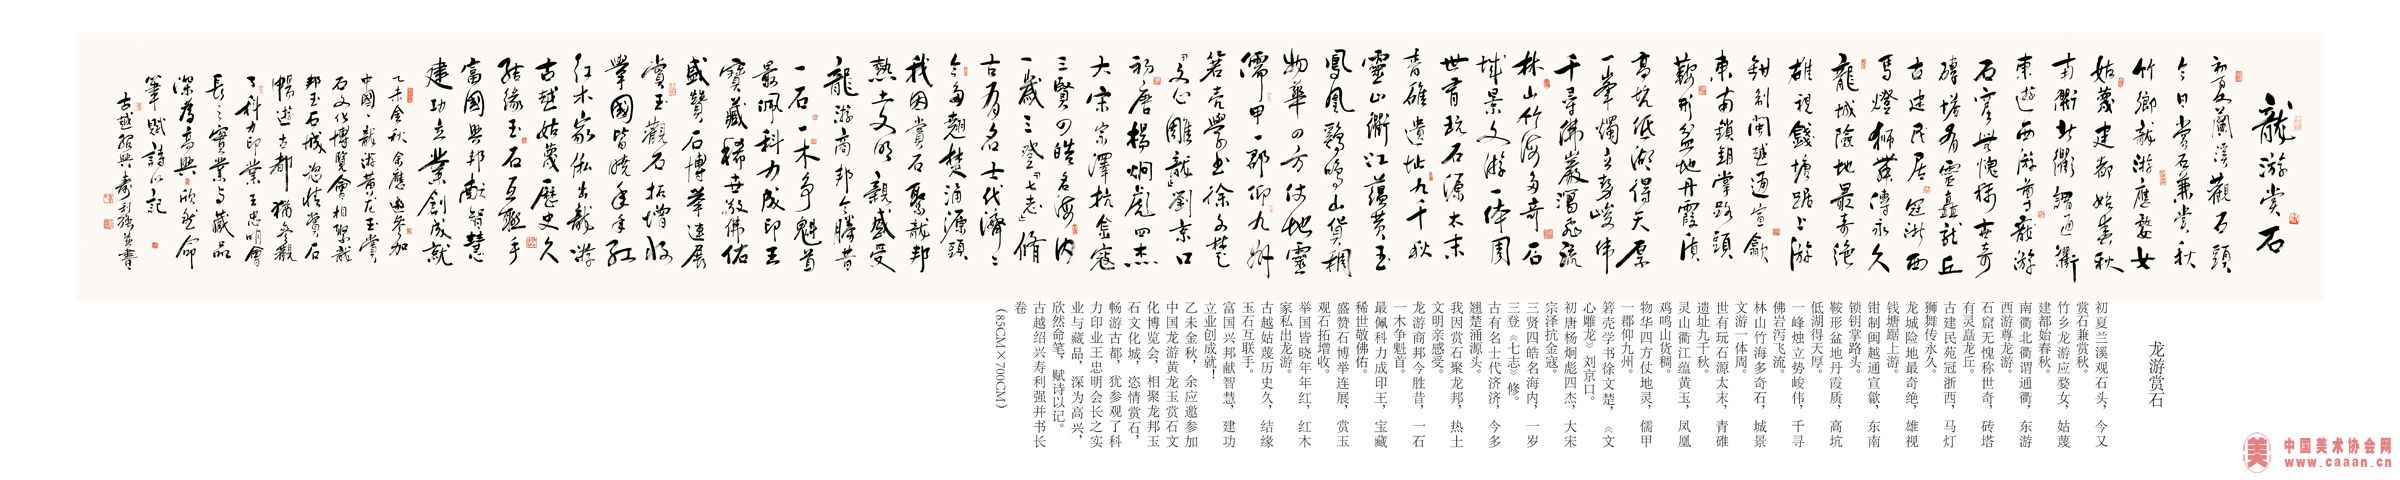 龍游賞石
初夏蘭溪觀石頭
今日賞石兼賞秋
竹鄉龍游應婺女
姑蔑建都始春秋
南衢北衢謂通衢
東遊西游尊龍游
石窟無愧稱世奇
磚塔有靈矗龍丘
古建民居冠浙西
馬燈獅舞傳永久
龍城險地最奇絕
雄視錢塘踞上游
鉗制閩越通宣歙
東南鎖鑰掌路頭
鞍形盆地丹霞質
高坑低湖得天厚
一峯燭立勢峻偉
千尋佛巖瀉飛流
林山竹海多奇石
城景文游一体周
世有玩石源太末
青碓遺址九千秋
靈山衢江蘊黄玉
鳳凰鷄鳴山貨稠
物華四方仗地靈
儒甲一郡仰九州
箬壳學書徐文楚
《文心雕龍》劉京口
初唐楊炯彪四杰
大宋宗澤抗金寇
三賢四皓名海内
一歲三登《七志》脩
古有名士代濟濟
今多翹楚涌源頭
我因賞石聚龍邦
熱土文明親感受
龍游商邦今勝昔
一石一木争魁首
最佩科力成印王
寶藏稀世敬佛佑
盛贊石博舉連展
賞玉觀石拓增收
舉國皆曉年年红
红木家俬出龍游
古越姑蔑歷史久
结缘玉石互聯手
富國興邦獻智慧
建功立業創成就
乙未金秋余應邀參加
中國龍游黄龙玉賞
石文化博覽會相聚龍
邦玉石城恣情賞石
暢遊古都猶參觀
了科力印業王忠明會
長之實業与藏品
深為高興欣然命
筆賦詩以記
古越紹興壽利强並書
龙游赏石
初夏兰溪观石头，今又
赏石兼赏秋。
竹乡龙游应婺女，姑蔑
建都始春秋。
南衢北衢谓通衢，东游
西游尊龙游。
石窟无愧称世奇，砖塔
有灵矗龙丘。
古建民苑冠浙西，马灯
狮舞传永久。
龙城险地最奇绝，雄视
钱塘踞上游。
钳制闽越通宣歙，东南
锁钥掌路头。
鞍形盆地丹霞质，高坑
低湖得天厚。
一峰烛立势峻伟，千寻
佛岩泻飞流。
林山竹海多奇石，城景
文游一体周。
世有玩石源太末，青碓
遗址九千秋。
灵山衢江蕴黄玉，凤凰
鸡鸣山货稠。
物华四方仗地灵，儒甲
一郡仰九州。
箬壳学书徐文楚，《文
心雕龙》刘京口。
初唐杨炯彪四杰，大宋
宗泽抗金寇。
三贤四皓名海内，一岁
三登《七志》修。
古有名士代济济，今多
翘楚涌源头。
我因赏石聚龙邦，热土
文明亲感受。
龙游商邦今胜昔，一石
一木争魁首。
最佩科力成印王，宝藏
稀世敬佛佑。
盛赞石博举连展，赏玉
观石拓增收。
举国皆晓年年红，红木
家私出龙游。
古越姑蔑历史久，结缘
玉石互联手。
富国兴邦献智慧，建功
立业创成就！
乙未金秋，余应邀参加
中国龙游黄龙玉赏石文
化博览会，相聚龙邦玉
石文化城，恣情赏石，
畅游古都，犹参观了科
力印业王忠明会长之实
业与藏品，深为高兴，
欣然命笔，赋诗以记。
古越绍兴寿利强并书长
卷
(85CM×700CM)
美
中国美术协会网
www.caaan.cn